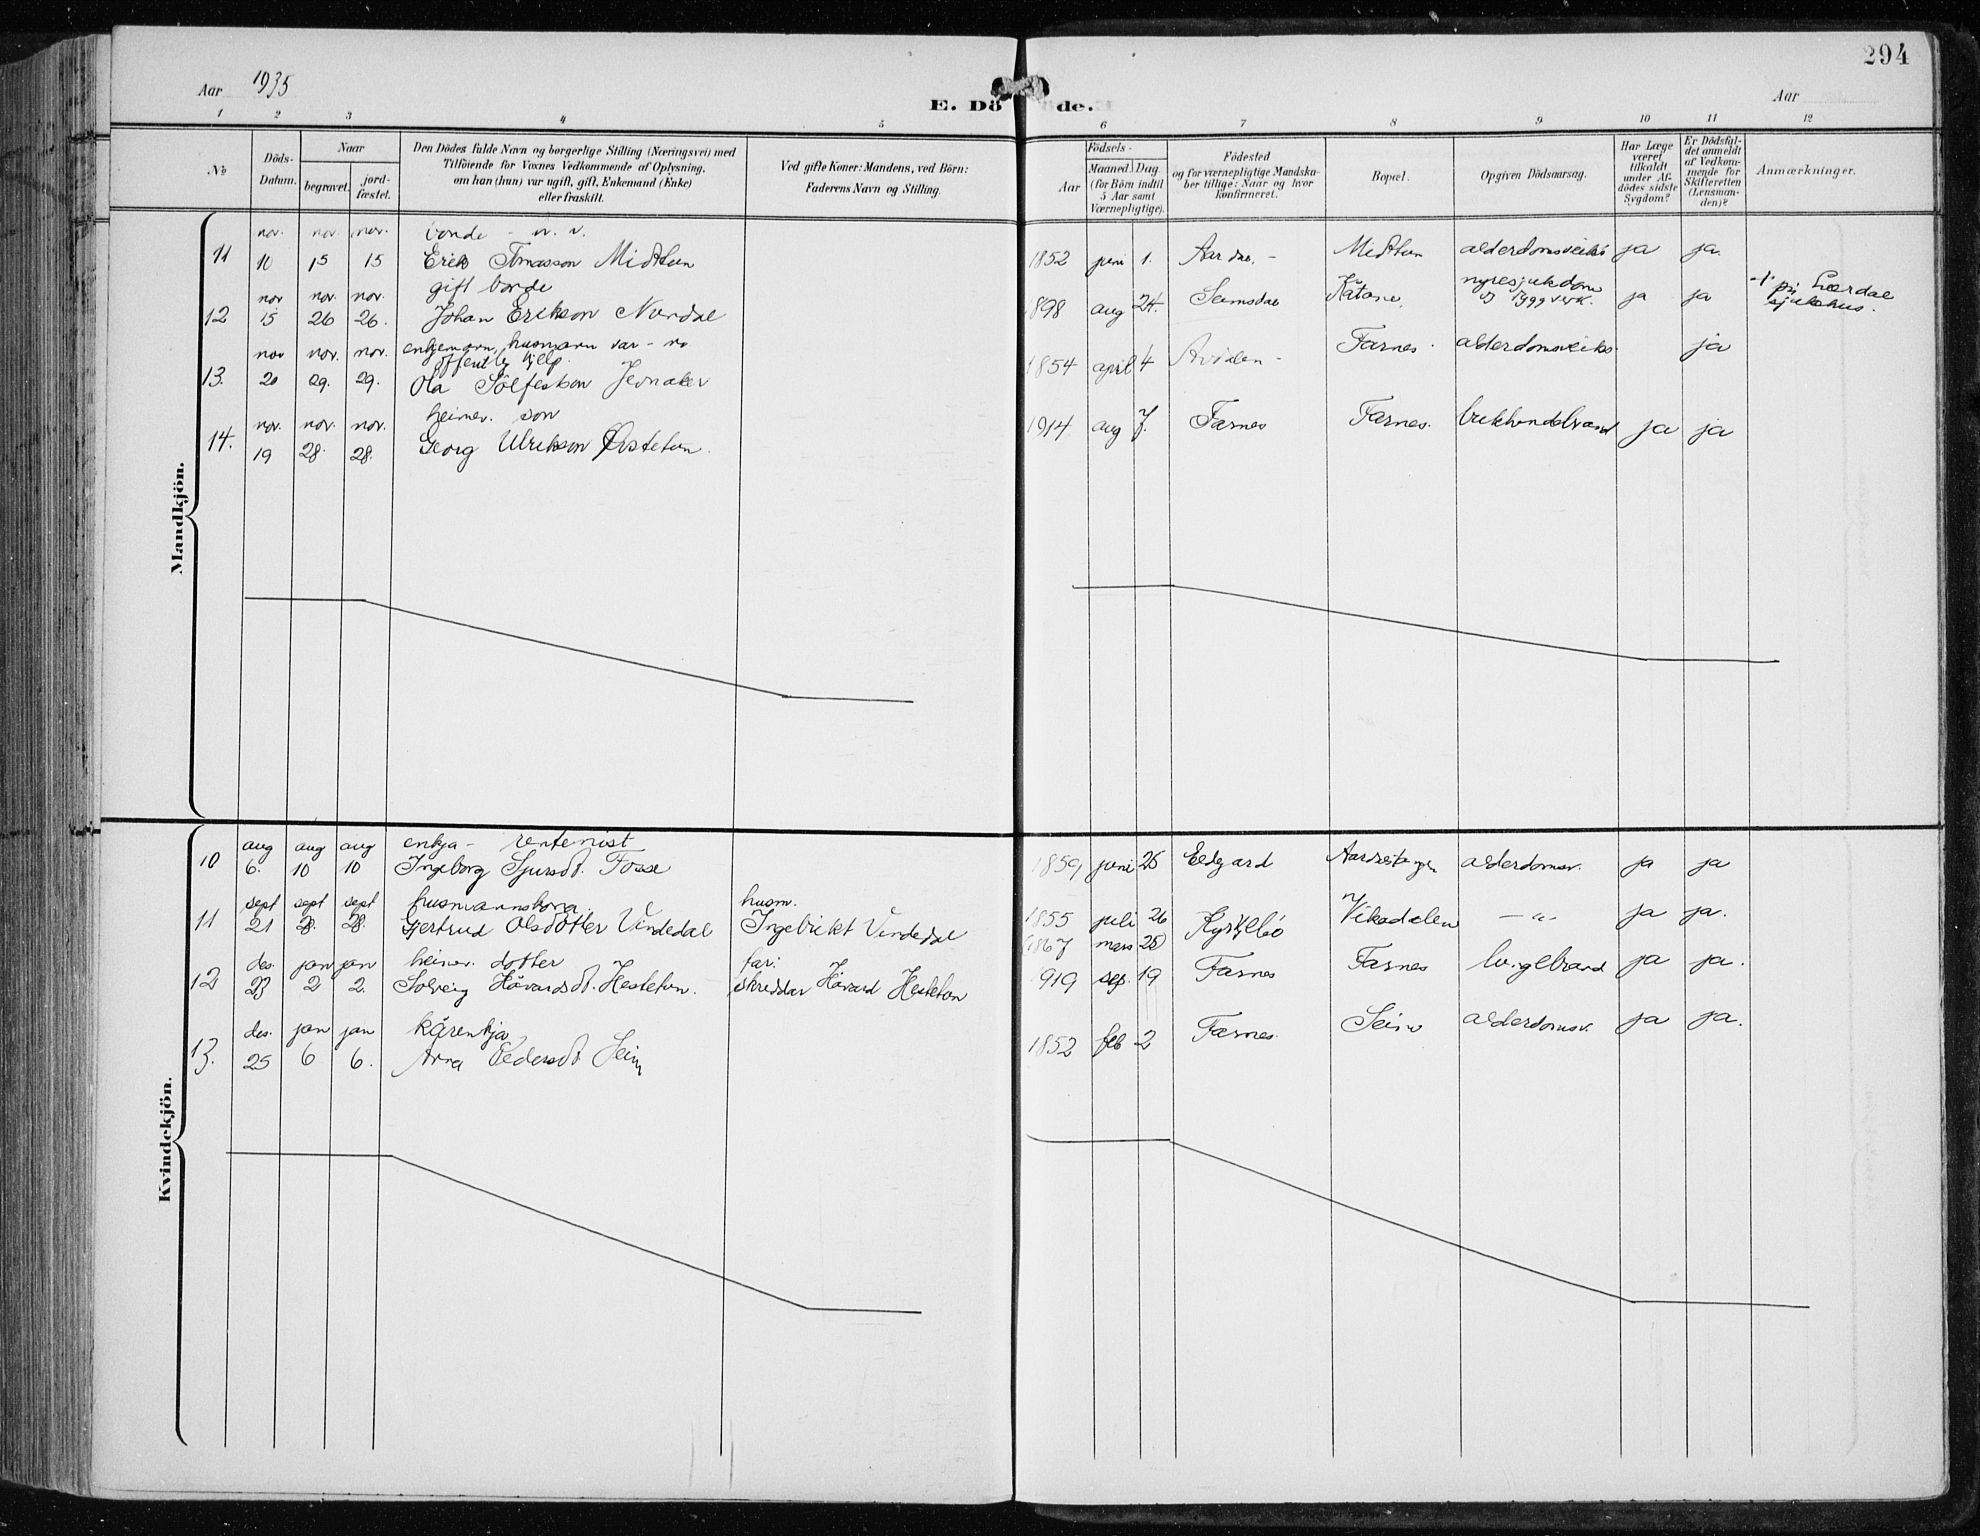 294
Aar 1935
E. Dö de.
Aar
1 2 3 4 5 6 7 8 9 10 11 12
No
Döds-Datum.
Naar
begravet.
jord-fæstet.
Den Dödes fulde Navn og borgerlige Stilling (Næringsvei) med
Tilföiende for Voxnes Vedkommende af Oplysning,
om han (hun) var ugift, gift, Enkemand (Enke)
eller fraskilt.
Ved gifte Koner: Mandens, ved Börn:
Faderens Navn og Stilling.
Födsels-
Aar
Maaned. Dag.
(for Börn indtil
5 Aar samt
Værnepligtige).
Födested
og for værnepligtige Mandska-
ber tillige: Naar og hvor
konfirmeret.
Bopæl.
Opgiven Dödsaarsag.
Har Læge
været
tilkaldt
under Af-
dödes sidste
Sygdom?
Er Dödsfal-
det anmeldt
af Vedkom-
mende for
Skifteretten
(Lensman-
den)?
Anmærkninger.
Mandkjön.
nov. nov nov. bonde
11 10 15 15 Erik Tomasson Midttun 1852 juni 1. Aardal Midttun ja ja.
nov nov. nov. gift bonde nyresjukdom
12 15 26 26. Johan Erikson Nundal 1898 aug 24. Seimsdal Kåtane ja ja † på Lærdal
sjukehus.
nov nov. nov. enkjemann, husmann
offentleg hjelp.
13. 20 29. 29. Ola Sölfestson 1854 april 4 Farnes ja
nov. nov. nov. heimev. son
14. 19 28. 28. Georg Ulrikson 1914 aug 7. Farnes Farnes. ja ja
Kvindekjön.
aug aug aug enkja - rentenist
10 6. 10 10 Ingeborg Sjursd. Fosse 1859 juni 25 alderdomsv. ja ja
sept sept sept husmannskona husm.
11 21 28. 28. Gjertrud Olsdotter Vindedal Ingebrikt Vindedal 1855 juli 26 Kyrkjebö Vikadalen - " - ja ja.
1867 mars 25
des. jan jan heimev. dotter far:
12 23 2 2. Solveig Hövardsd. Hestetun. skreddar Hövard Hestetun 919 sep. 19 Farnes Farnes lungebrand ja ja.
des. jan jan kårenkja
13. 25 6 6. Anna Pedersd. Seim 1852 feb 2 Farnes. Seim alderdomsv. ja ja.